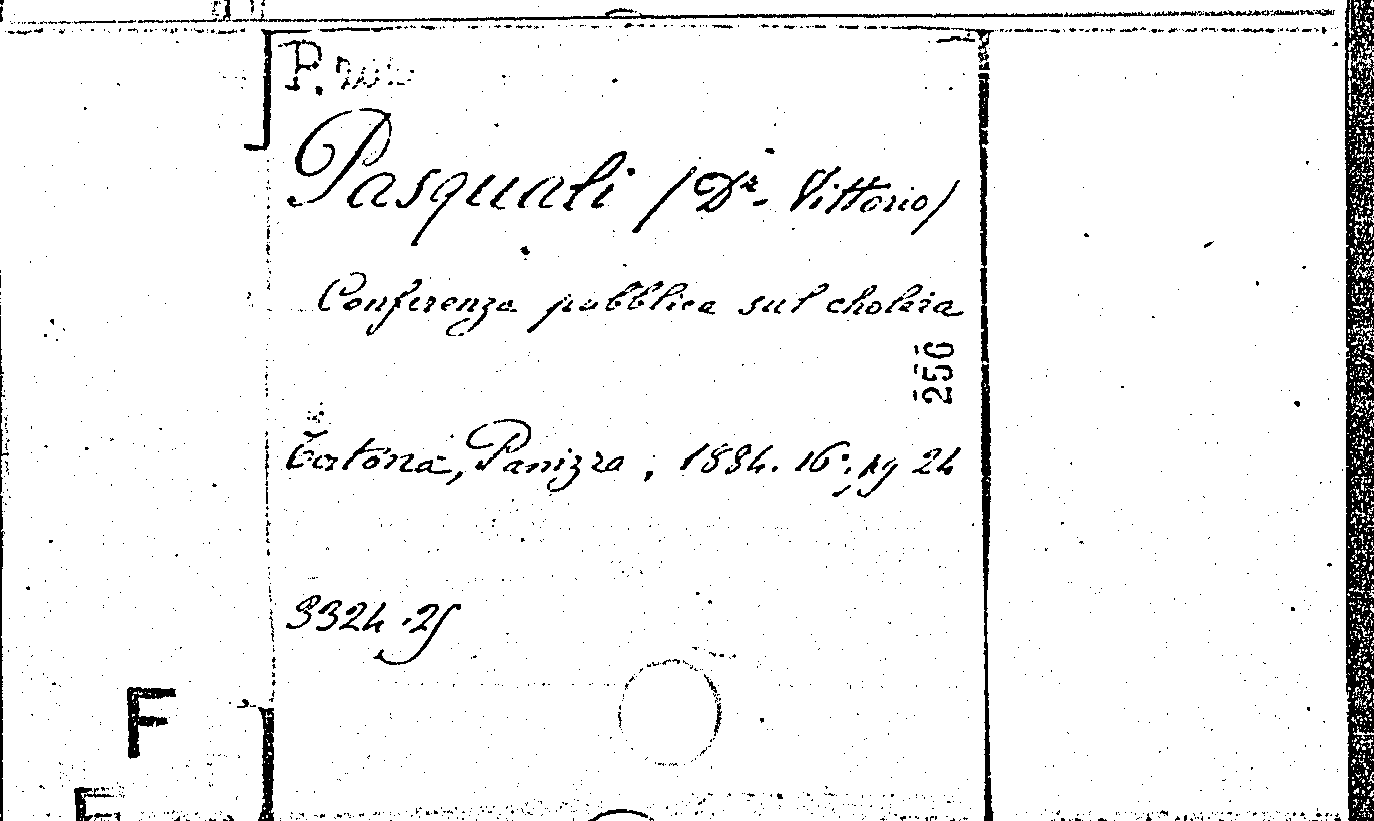 P.
Pasquali (Dr. Vittorio)
Conferenza pubblica sul cholera
256
Tortona, Panizza, 1884. 16°, pg 24
3324.25
F
F